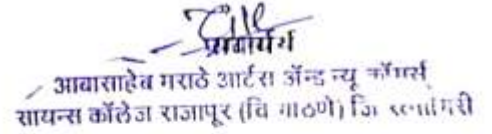 प्राचार्य
आबासाहेब मराठे आर्टस ॲन्ड न्यू कॉमर्स
सायन्स कॉलेज राजापूर (वि गाठणे) जि रत्नागिरी